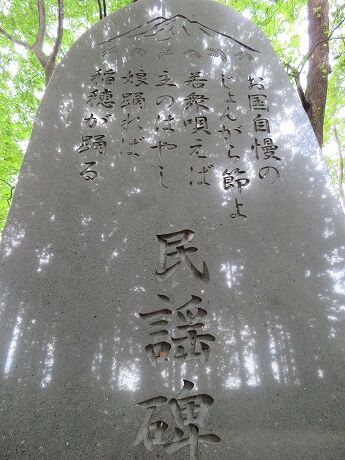 お国自慢の
じょんがら節よ
若衆唄えば
主のはやし
娘踊れば
稲穂が踊る
民謡碑